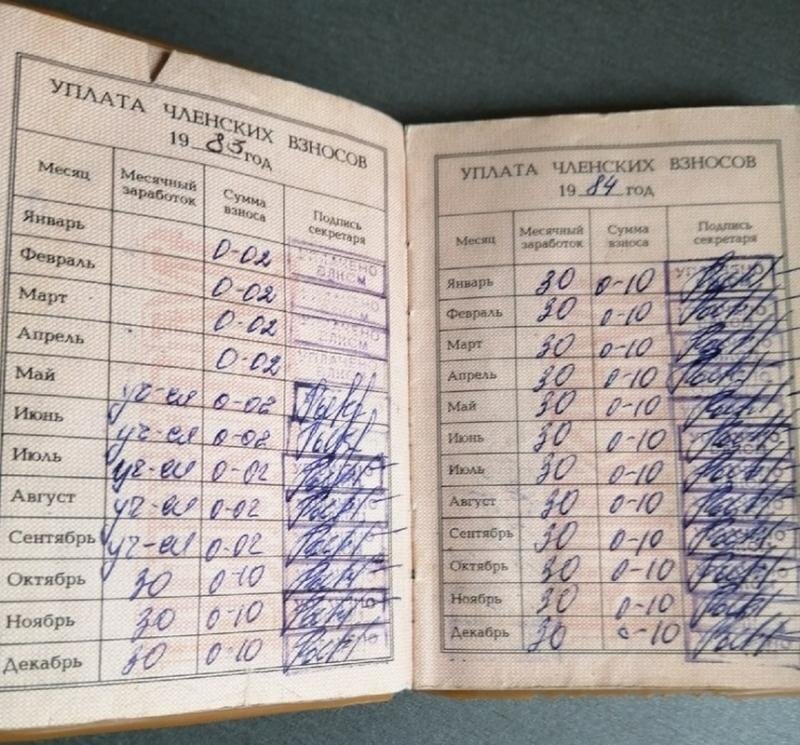 УПЛАТА ЧЛЕНСКИХ ВЗНОСОВ
1983 год
Месяц Месячный заработок Сумма взноса Подпись секретаря
Январь 0-02 УПЛАЧЕНО ВЛКСМ
Февраль 0-02
Март 0-02 УПЛАЧЕНО ВЛКСМ
Апрель 0-02 УПЛАЧЕНО ВЛКСМ
Май уч-ся 0-02
Июнь уч-ся 0-02
Июль уч-ся 0-02
Август уч-ся 0-02
Сентябрь уч-ся 0-02
Октябрь 30 0-10
Ноябрь 30 0-10
Декабрь 30 0-10
УПЛАТА ЧЛЕНСКИХ ВЗНОСОВ
1984 год
Месяц Месячный заработок Сумма взноса Подпись секретаря
Январь 30 0-10
Февраль 30 0-10
Март 30 0-10
Апрель 30 0-10
Май 30 0-10
Июнь 30 0-10
Июль 30 0-10
Август 30 0-10
Сентябрь 30 0-10
Октябрь 30 0-10
Ноябрь 30 0-10
Декабрь 30 0-10